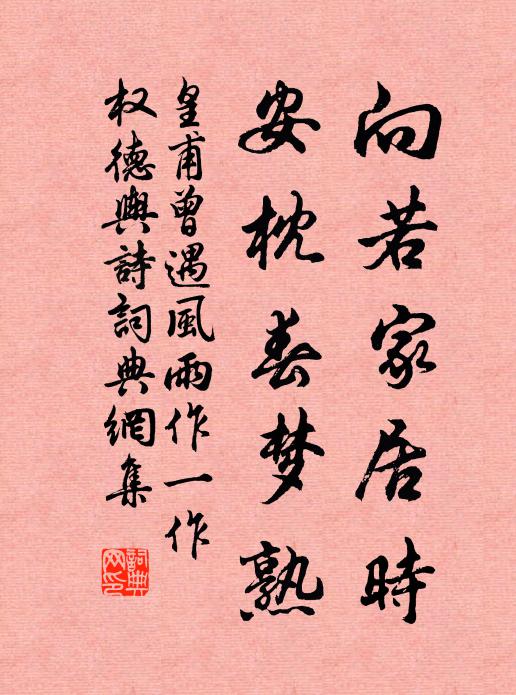 向若家居時
安枕春梦熟
皇甫曾遇風雨作一作
权德輿詩詞典網集
詞典网印